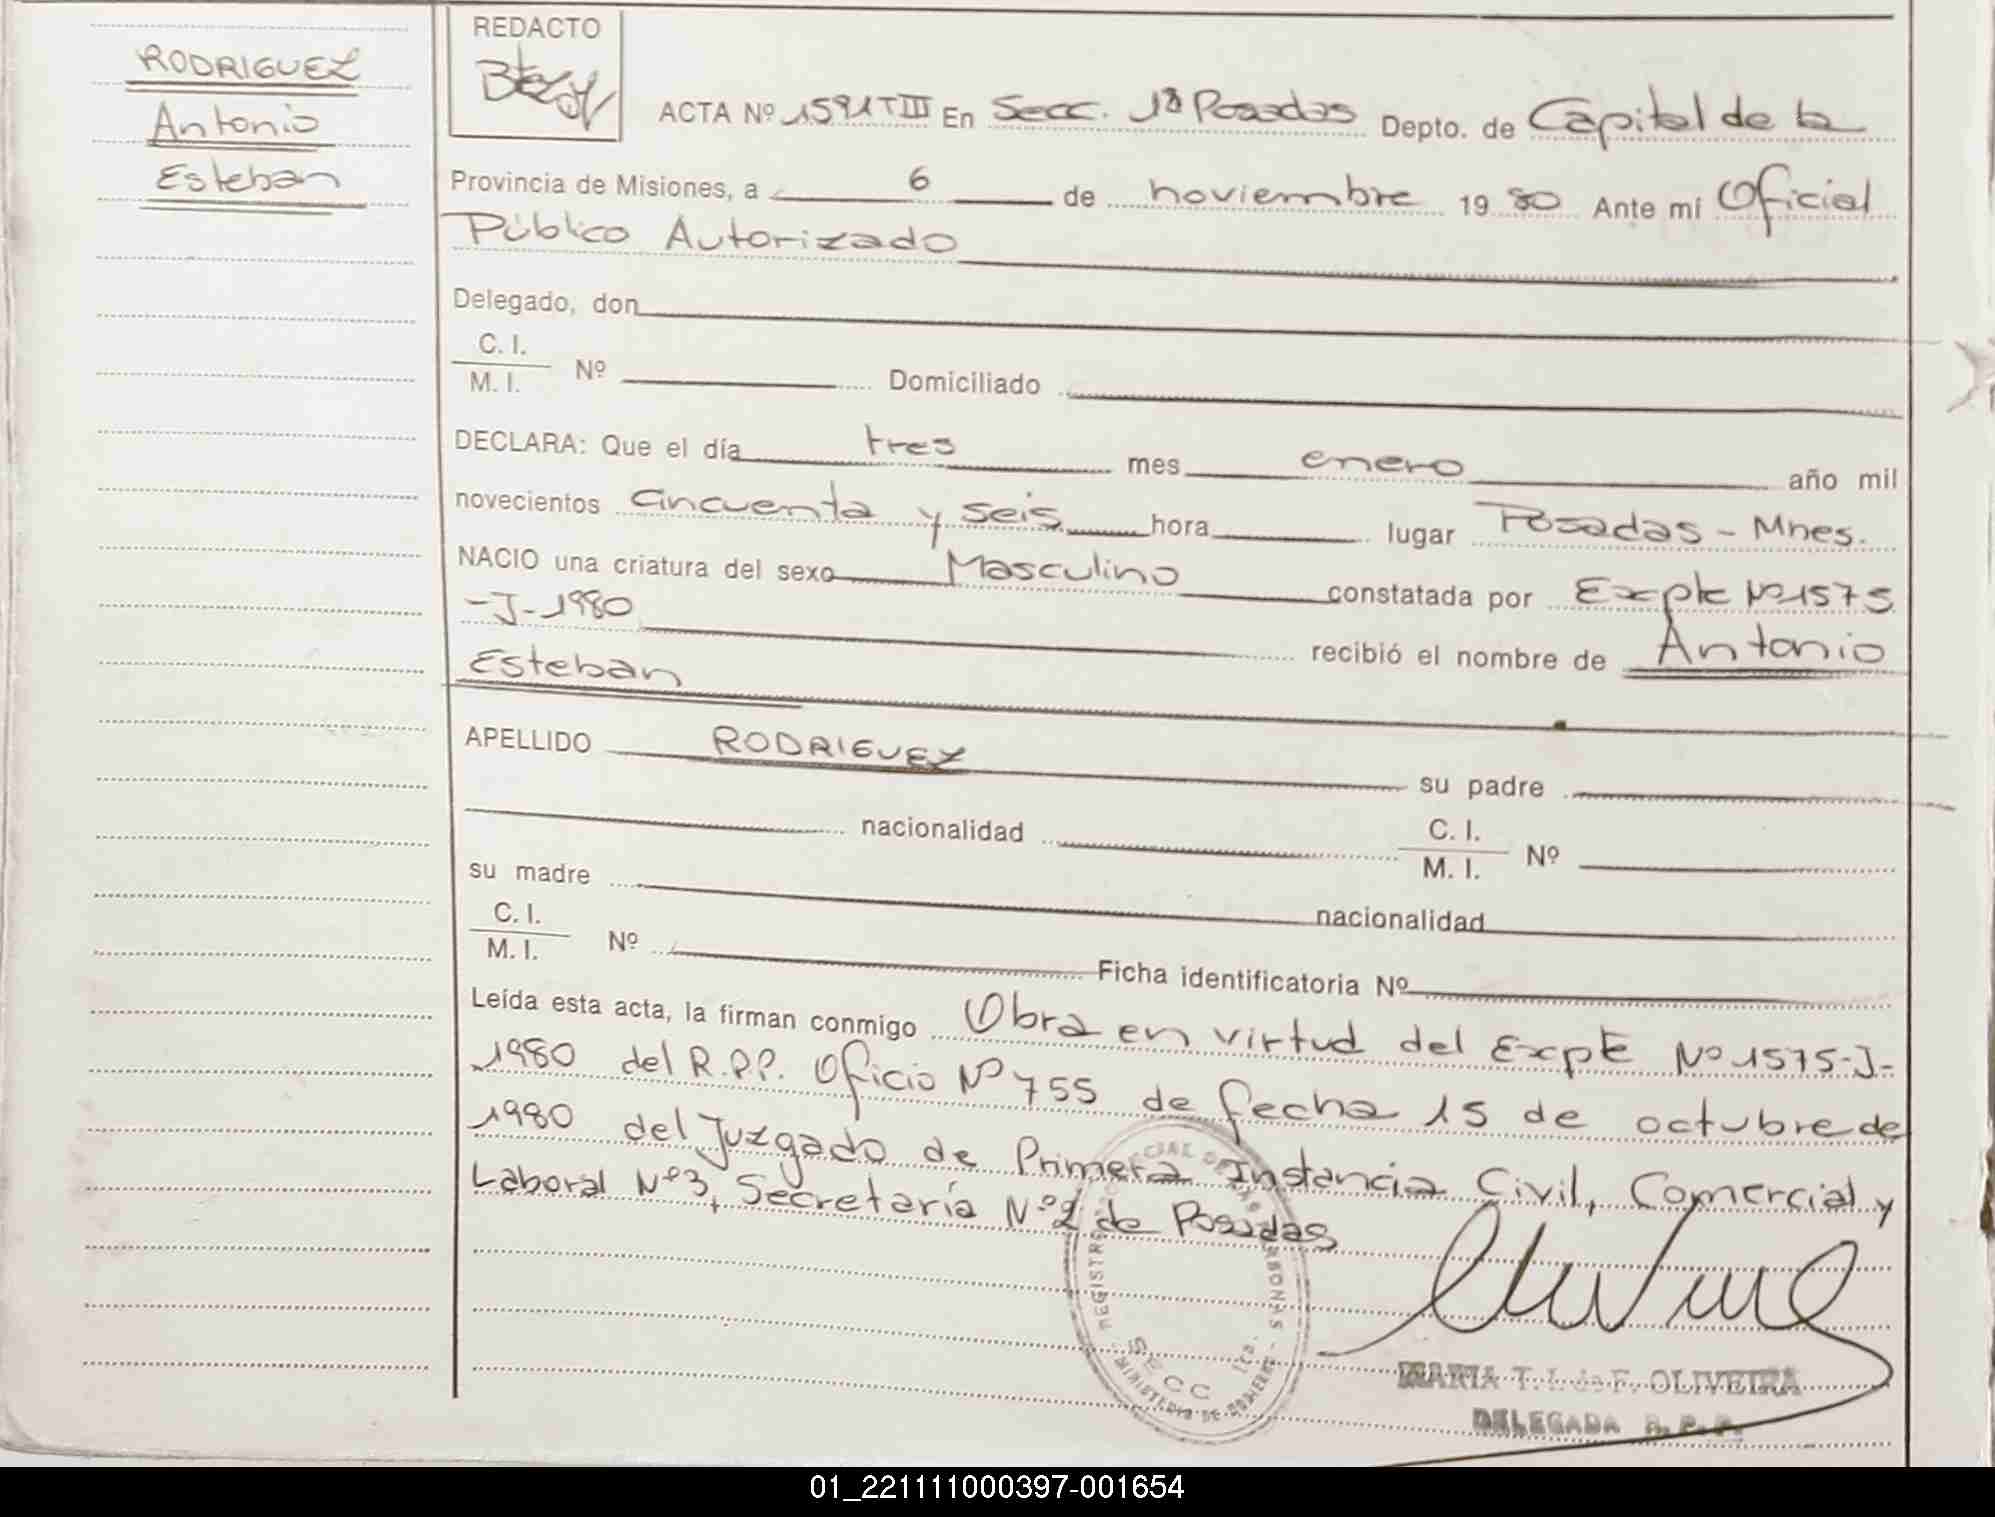 RODRIGUEZ
Antonio
Esteban
REDACTO
ACTA Nº 1591 T III En Secc. 1ª Posadas Depto. de Capital de la
Provincia de Misiones, a 6 de noviembre 19 80 Ante mí Oficial
Público Autorizado
Delegado, don
C. I.
M. I. Nº Domiciliado
DECLARA: Que el día tres mes enero año mil
novecientos cincuenta y seis hora lugar Posadas - Mnes.
NACIO una criatura del sexo Masculino constatada por Expte Nº 1575
-J-1980 recibió el nombre de Antonio
Esteban
APELLIDO RODRIGUEZ su padre
nacionalidad C. I.
M. I. Nº
su madre nacionalidad
C. I.
M. I. Nº Ficha identificatoria Nº
Leída esta acta, la firman conmigo Obra en virtud del Expte Nº 1575-J-
1980 del R.P.P. Oficio Nº 755 de fecha 15 de octubre de
1980 del Juzgado de Primera Instancia Civil, Comercial y
Laboral Nº 3, Secretaría Nº 2 de Posadas
MARIA T. L. de F. OLIVEIRA
DELEGADA R. P. P.
01_221111000397-001654